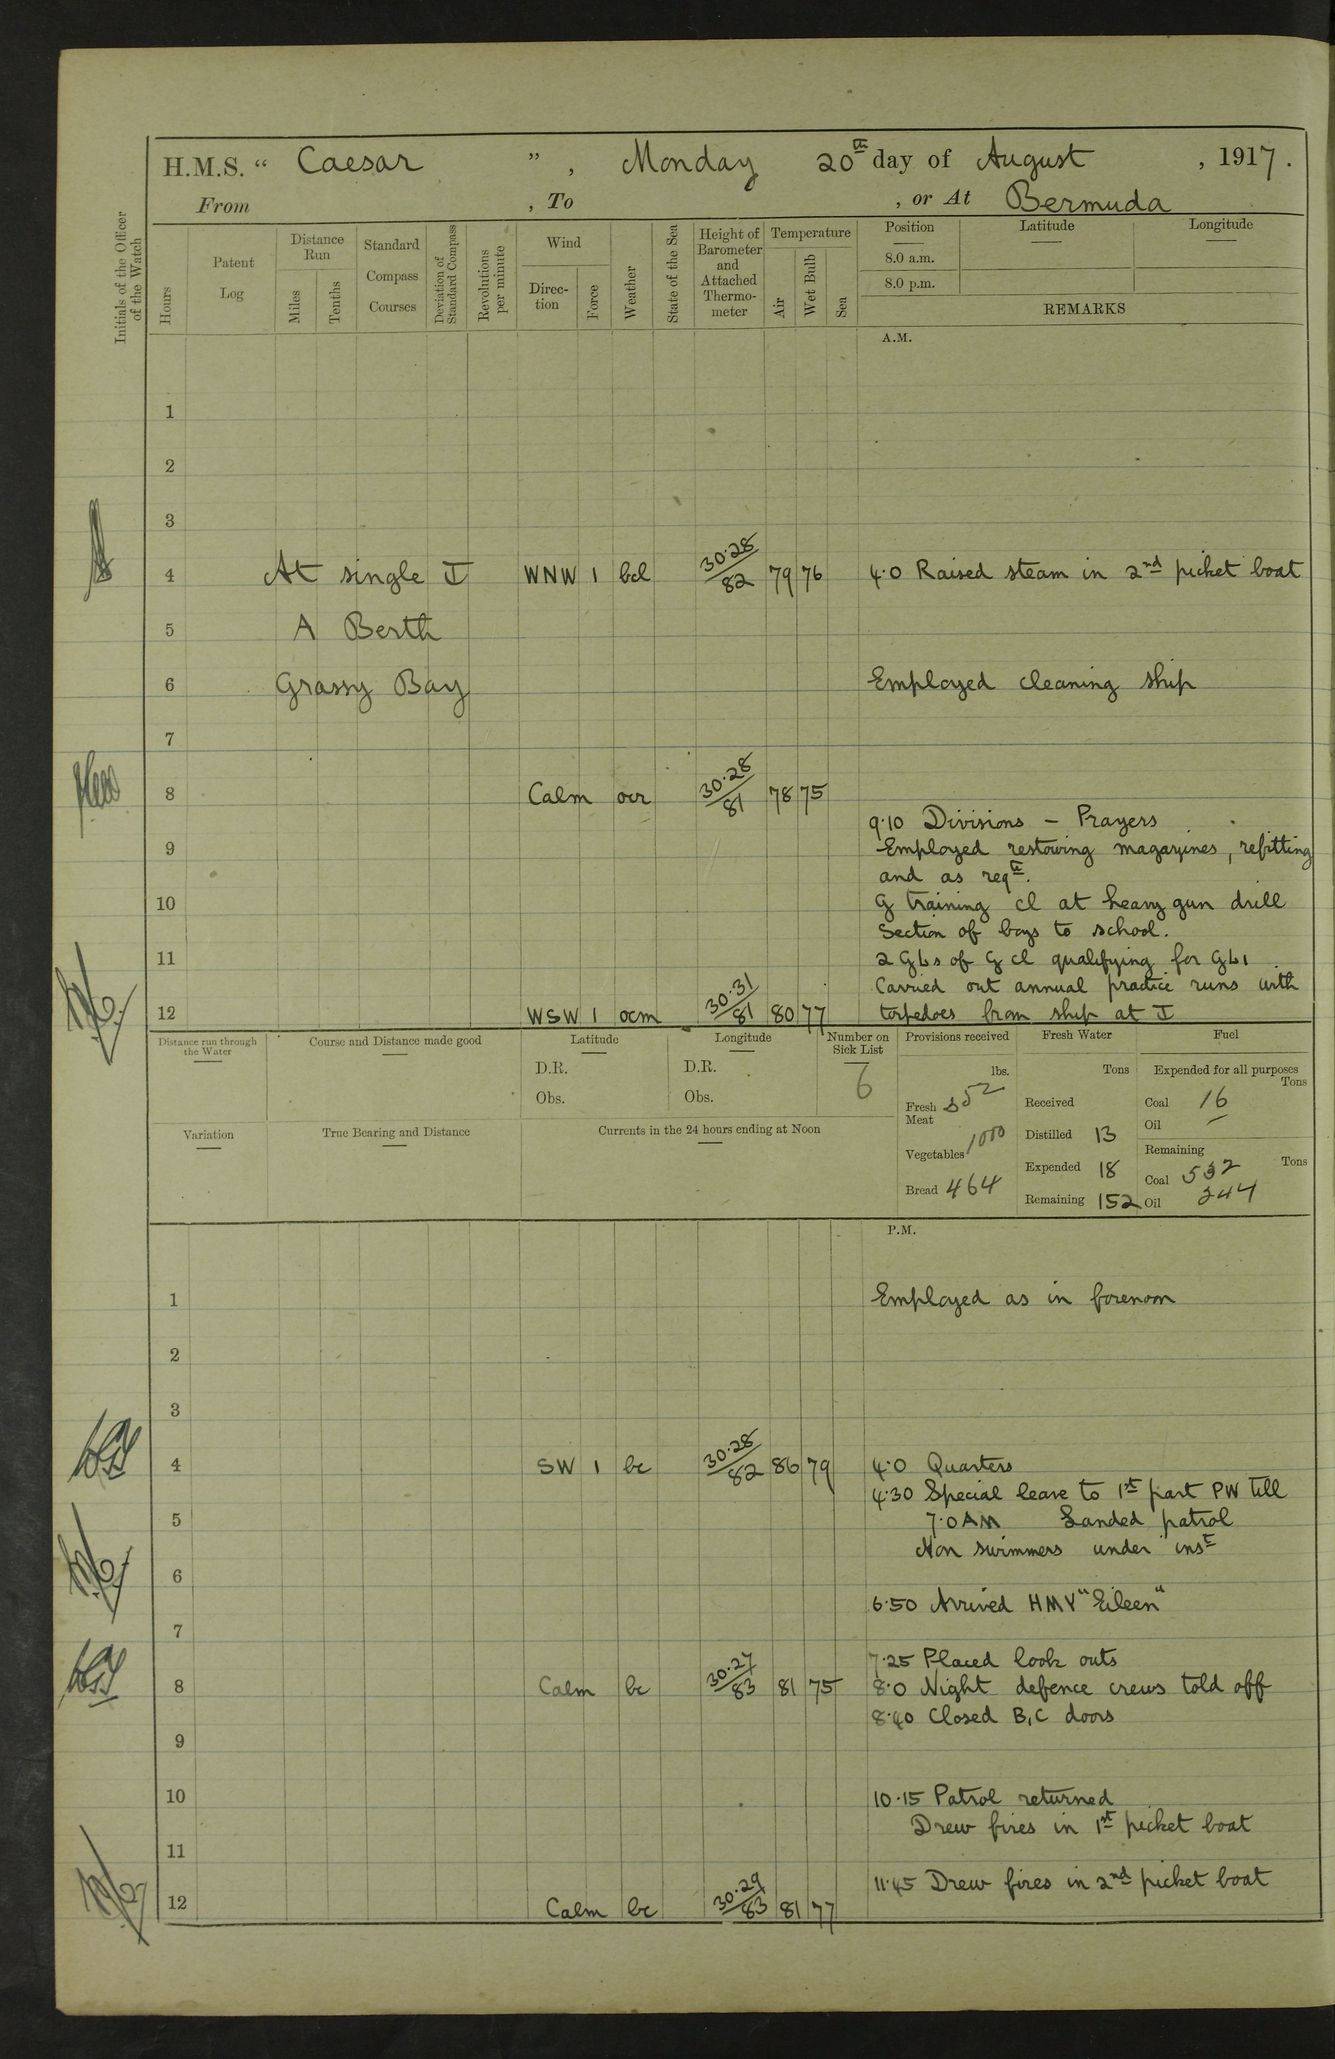 H.M.S. “ Caesar ”, Monday 20th day of August , 1917.
From , To , or At Bermuda
Initials of the Officer of the Watch
Hours
Patent Log
Distance Run
Miles
Tenths
Standard Compass Courses
Deviation of Standard Compass
Revolutions per minute
Wind
Direction
Force
Weather
State of the Sea
Height of Barometer and Attached Thermometer
Temperature
Air
Wet Bulb
Sea
Position
Latitude
Longitude
8.0 a.m.
8.0 p.m.
REMARKS
A.M.
1
2
3
4 At single I WNW 1 bcl 30.28/82 79 76 4.0 Raised steam in 2nd picket boat
5 A Berth
6 Grassy Bay Employed cleaning ship
7
8 Calm ocr 30.28/81 78 75
9.10 Divisions – Prayers
9 Employed restowing magazines, refitting
and as reqte.
10 G training cl at heavy gun drill
Section of boys to school.
11 2 GLs of G cl qualifying for GL1
Carried out annual practice runs with
12 WSW 1 ocm 30.31/81 80 77 torpedoes from ship at I
Distance run through the Water
Course and Distance made good
Latitude
D.R.
Obs.
Longitude
D.R.
Obs.
Number on Sick List
6
Provisions received
lbs.
Fresh Meat 552
Vegetables 1000
Bread 464
Fresh Water
Tons
Received
Distilled 13
Expended 18
Remaining 152
Fuel
Expended for all purposes
Tons
Coal 16
Oil –
Remaining
Tons
Coal 532
Oil 344
Variation
True Bearing and Distance
Currents in the 24 hours ending at Noon
P.M.
1 Employed as in forenoon
2
3
4 SW 1 bc 30.28/82 86 79 4.0 Quarters
4.30 Special leave to 1st part PW till
5 7.0 AM Landed patrol
Non swimmers under inst
6
6.50 Arrived HMY "Eileen"
7
7.25 Placed look outs
8 Calm bc 30.27/83 81 75 8.0 Night defence crews told off
8.40 Closed B,C doors
9
10 10.15 Patrol returned
Drew fires in 1st picket boat
11
11.45 Drew fires in 2nd picket boat
12 Calm bc 30.29/83 81 77